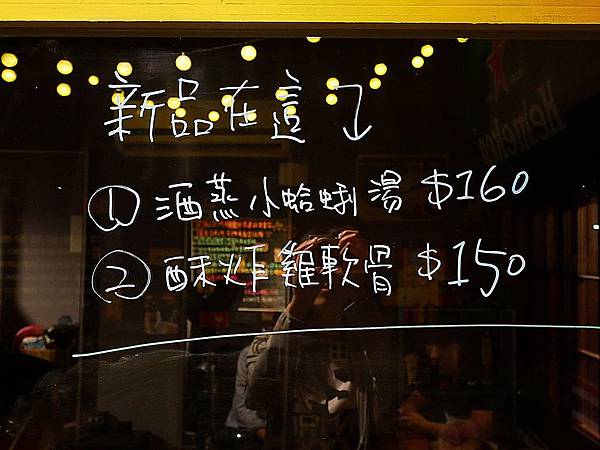 新品在這↴
① 酒蒸小蛤蜊湯 $160
② 酥炸雞軟骨 $150
Heineken